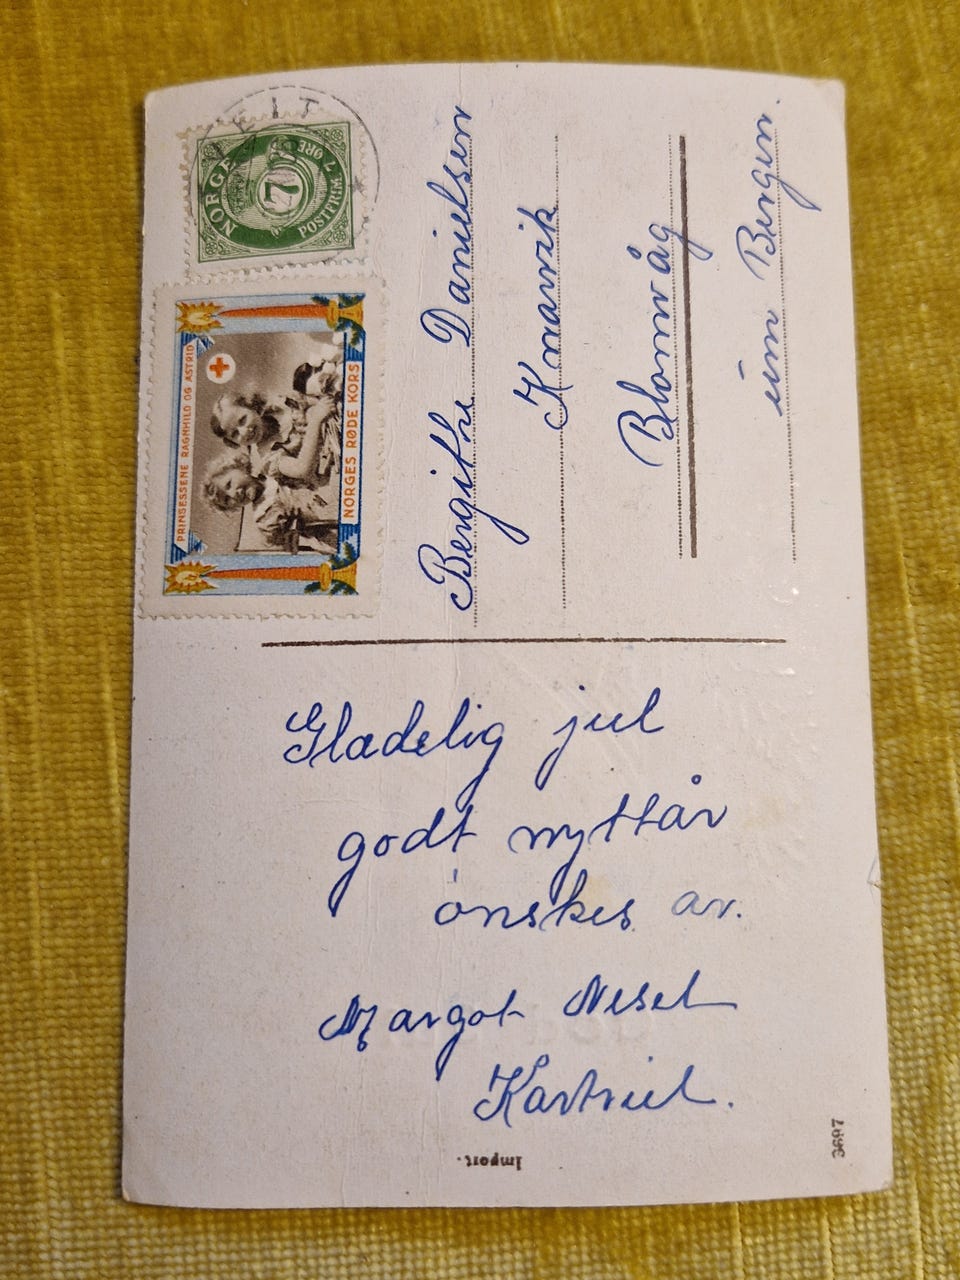 NORGE
7
POSTFRIM. 7 ØRE
PRINSESSENE RAGNHILD OG ASTRID
NORGES RØDE KORS
Bergithe Danielsen
Knarvik
Blomvåg
um Bergen.
Gladelig jul
godt nyttår
ønskes av.
Margot Neset
Import.
3697